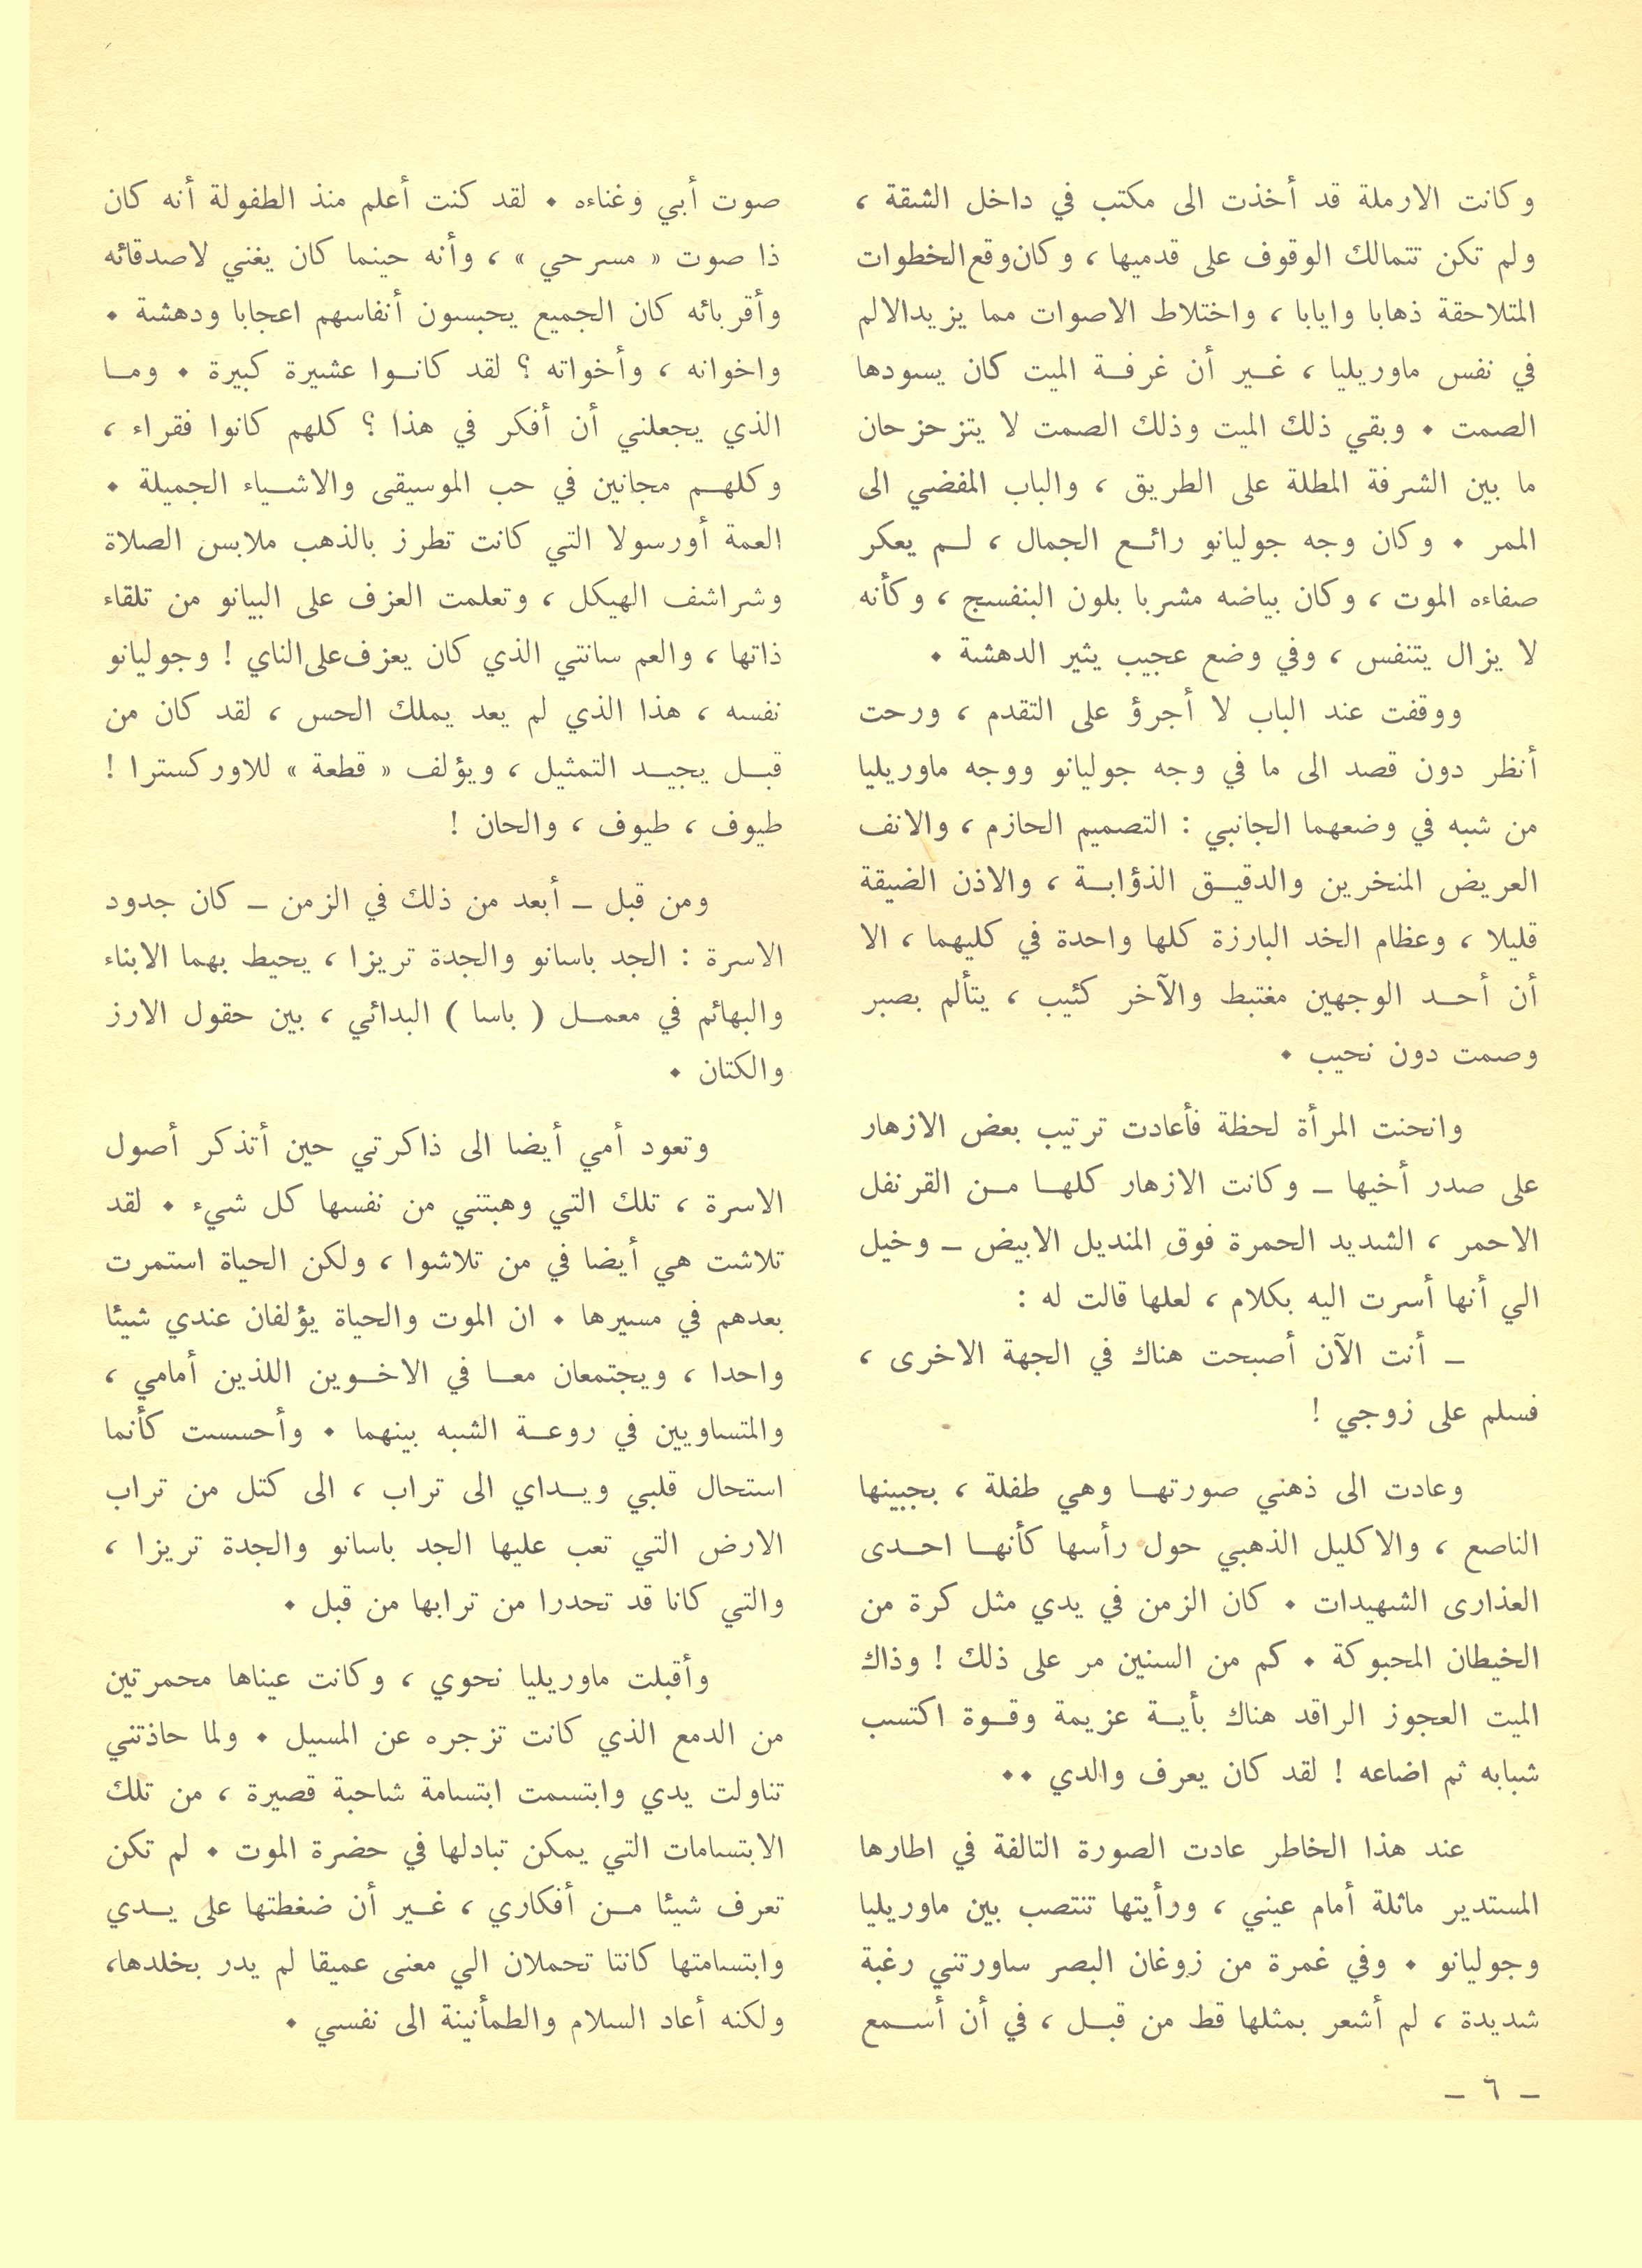 وكانت الارملة قد أخذت الى مكتب في داخل الشقة ،
ولم تكن تتمالك الوقوف على قدميها ، وكان وقع الخطوات
المتلاحقة ذهابا وايابا ، واختلاط الاصوات مما يزيد الالم
في نفس ماوريليا ، غير أن غرفة الميت كان يسودها
الصمت . وبقي ذلك الميت وذلك الصمت لا يتزحزحان
ما بين الشرفة المطلة على الطريق ، والباب المفضي الى
الممر . وكان وجه جوليانو رائع الجمال ، لم يعكر
صفاءه الموت ، وكان بياضه مشربا بلون البنفسج ، وكأنه
لا يزال يتنفس ، وفي وضع عجيب يثير الدهشة .
ووقفت عند الباب لا أجرؤ على التقدم ، ورحت
أنظر دون قصد الى ما في وجه جوليانو ووجه ماوريليا
من شبه في وضعهما الجانبي : التصميم الحازم ، والانف
العريض المنخرين والدقيق الذؤابة ، والاذن الضيقة
قليلا ، وعظام الخد البارزة كلها واحدة في كليهما ، الا
أن أحد الوجهين مغتبط والآخر كئيب ، يتألم بصبر
وصمت دون نحيب .
وانحنت المرأة لحظة فأعادت ترتيب بعض الازهار
على صدر أخيها – وكانت الازهار كلها من القرنفل
الاحمر ، الشديد الحمرة فوق المنديل الابيض – وخيل
الي أنها أسرت اليه بكلام ، لعلها قالت له :
– أنت الآن أصبحت هناك في الجهة الاخرى ،
فسلم على زوجي !
وعادت الى ذهني صورتها وهي طفلة ، بجبينها
الناصع ، والاكليل الذهبي حول رأسها كأنها احدى
العذارى الشهيدات . كان الزمن في يدي مثل كرة من
الخيطان المحبوكة . كم من السنين مر على ذلك ! وذاك
الميت العجوز الراقد هناك بأية عزيمة وقوة اكتسب
شبابه ثم اضاعه ! لقد كان يعرف والدي ..
عند هذا الخاطر عادت الصورة التالفة في اطارها
المستدير ماثلة أمام عيني ، ورأيتها تنتصب بين ماوريليا
وجوليانو . وفي غمرة من زوغان البصر ساورتني رغبة
شديدة ، لم أشعر بمثلها قط من قبل ، في أن أسمع
صوت أبي وغناءه . لقد كنت أعلم منذ الطفولة أنه كان
ذا صوت « مسرحي » ، وأنه حينما كان يغني لاصدقائه
وأقربائه كان الجميع يحبسون أنفاسهم اعجابا ودهشة .
واخوانه ، وأخواته ؟ لقد كانوا عشيرة كبيرة . وما
الذي يجعلني أن أفكر في هذا ؟ كلهم كانوا فقراء ،
وكلهم مجانين في حب الموسيقى والاشياء الجميلة .
العمة أورسولا التي كانت تطرز بالذهب ملابس الصلاة
وشراشف الهيكل ، وتعلمت العزف على البيانو من تلقاء
ذاتها ، والعم سانتي الذي كان يعزف على الناي ! وجوليانو
نفسه ، هذا الذي لم يعد يملك الحس ، لقد كان من
قبل يجيد التمثيل ، ويؤلف « قطعة » للاوركسترا !
طيوف ، طيوف ، والحان !
ومن قبل – أبعد من ذلك في الزمن – كان جدود
الاسرة : الجد باسانو والجدة تريزا ، يحيط بهما الابناء
والبهائم في معمل ( باسا ) البدائي ، بين حقول الارز
والكتان .
وتعود أمي أيضا الى ذاكرتي حين أتذكر أصول
الاسرة ، تلك التي وهبتني من نفسها كل شيء . لقد
تلاشت هي أيضا في من تلاشوا ، ولكن الحياة استمرت
بعدهم في مسيرها . ان الموت والحياة يؤلفان عندي شيئا
واحدا ، ويجتمعان معا في الاخوين اللذين أمامي ،
والمتساويين في روعة الشبه بينهما . وأحسست كأنما
استحال قلبي ويداي الى تراب ، الى كتل من تراب
الارض التي تعب عليها الجد باسانو والجدة تريزا ،
والتي كانا قد تحدرا من ترابها من قبل .
وأقبلت ماوريليا نحوي ، وكانت عيناها محمرتين
من الدمع الذي كانت تزجره عن المسيل . ولما حاذتني
تناولت يدي وابتسمت ابتسامة شاحبة قصيرة ، من تلك
الابتسامات التي يمكن تبادلها في حضرة الموت . لم تكن
تعرف شيئا من أفكاري ، غير أن ضغطتها على يدي
وابتسامتها كانتا تحملان الي معنى عميقا لم يدر بخلدها،
ولكنه أعاد السلام والطمأنينة الى نفسي .
– ٦ –